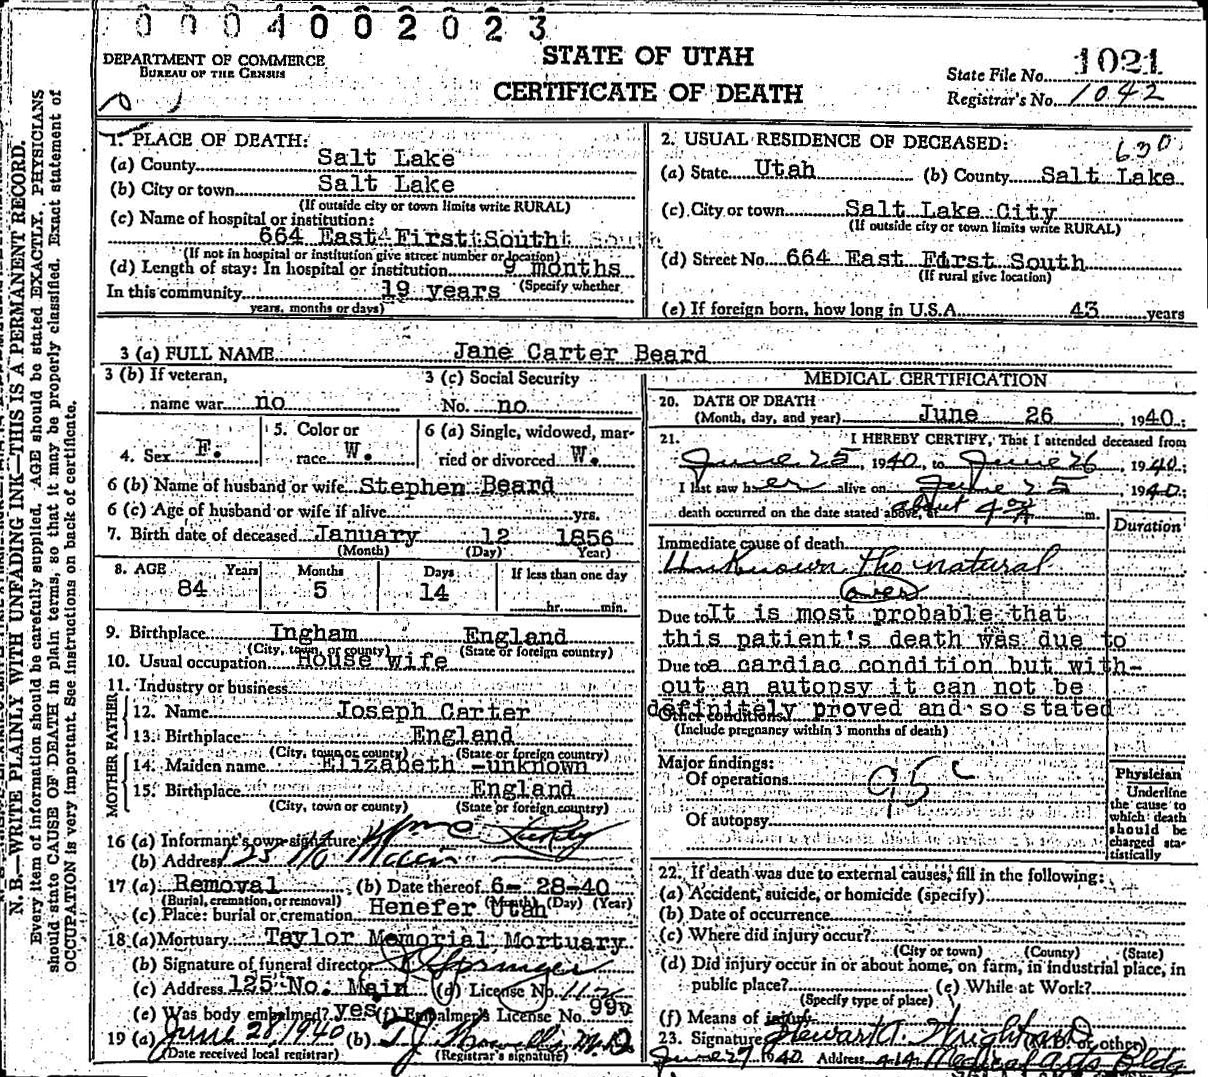 0004002023
DEPARTMENT OF COMMERCE
BUREAU OF THE CENSUS
STATE OF UTAH
CERTIFICATE OF DEATH
State File No. 1021
Registrar's No. 1042
1. PLACE OF DEATH:
(a) County Salt Lake
(b) City or town Salt Lake
(If outside city or town limits write RURAL)
(c) Name of hospital or institution:
664 East First South
(If not in hospital or institution give street number or location)
(d) Length of stay: In hospital or institution 9 months
(Specify whether
In this community 19 years
years, months or days)
2. USUAL RESIDENCE OF DECEASED:
630
(a) State Utah (b) County Salt Lake
(c) City or town Salt Lake City
(If outside city or town limits write RURAL)
(d) Street No. 664 East First South
(If rural give location)
(e) If foreign born, how long in U.S.A. 43 years
3 (a) FULL NAME Jane Carter Beard
3 (b) If veteran,
name war no
3 (c) Social Security
No. no
4. Sex F.
5. Color or
race W.
6 (a) Single, widowed, mar-
ried or divorced W.
6 (b) Name of husband or wife Stephen Beard
6 (c) Age of husband or wife if alive yrs.
7. Birth date of deceased January 12 1856
(Month) (Day) Year)
8. AGE Years Months Days If less than one day
84 5 14 hr. min.
9. Birthplace Ingham England
(City, town, or county) (State or foreign country)
10. Usual occupation House wife
11. Industry or business
FATHER
12. Name Joseph Carter
13. Birthplace England
(City, town or county) (State or foreign country)
MOTHER
14. Maiden name Elizabeth -unknown
15. Birthplace England
(City, town or county) (State or foreign country)
16 (a) Informant's own signature
(b) Address 125 No Main
17 (a) Removal (b) Date thereof 6- 28-40
(Burial, cremation, or removal) (Month) (Day) (Year)
(c) Place: burial or cremation Henefer Utah
18 (a) Mortuary Taylor Memorial Mortuary
(b) Signature of funeral director Springer
(c) Address 125 No. Main (d) License No.
(e) Was body embalmed? yes (f) Embalmer's License No. 990
19 (a) June 28, 1940 (b) M.D
(Date received local registrar) (Registrar's signature)
MEDICAL CERTIFICATION
20. DATE OF DEATH
(Month, day, and year) June 26 1940
21. I HEREBY CERTIFY, That I attended deceased from
June 25, 1940, to June 26, 1940;
I last saw her alive on June 25, 1940;
death occurred on the date stated above, at about 4 m.
Duration
Immediate cause of death
Unknown tho natural
(over)
Due to It is most probable that
this patient's death was due to
Due to a cardiac condition but with-
out an autopsy it can not be
definitely proved and so stated
Other conditions
(Include pregnancy within 3 months of death)
Major findings:
Of operations 95c
Of autopsy
Physician
Underline
the cause to
which death
should be
charged sta-
tistically
22. If death was due to external causes, fill in the following:
(a) Accident, suicide, or homicide (specify)
(b) Date of occurrence
(c) Where did injury occur?
(City or town) (County) (State)
(d) Did injury occur in or about home, on farm, in industrial place, in
public place? (e) While at Work?
(Specify type of place)
(f) Means of injury
23. Signature Stewart A. Wright MD (M.D. or other)
June 27 1940 Address 414 Medical Arts Bldg
N. B.—WRITE PLAINLY WITH UNFADING INK—THIS IS A PERMANENT RECORD.
Every item of information should be carefully supplied. AGE should be stated EXACTLY. PHYSICIANS
should state CAUSE OF DEATH in plain terms, so that it may be properly classified. Exact statement of
OCCUPATION is very important. See instructions on back of certificate.